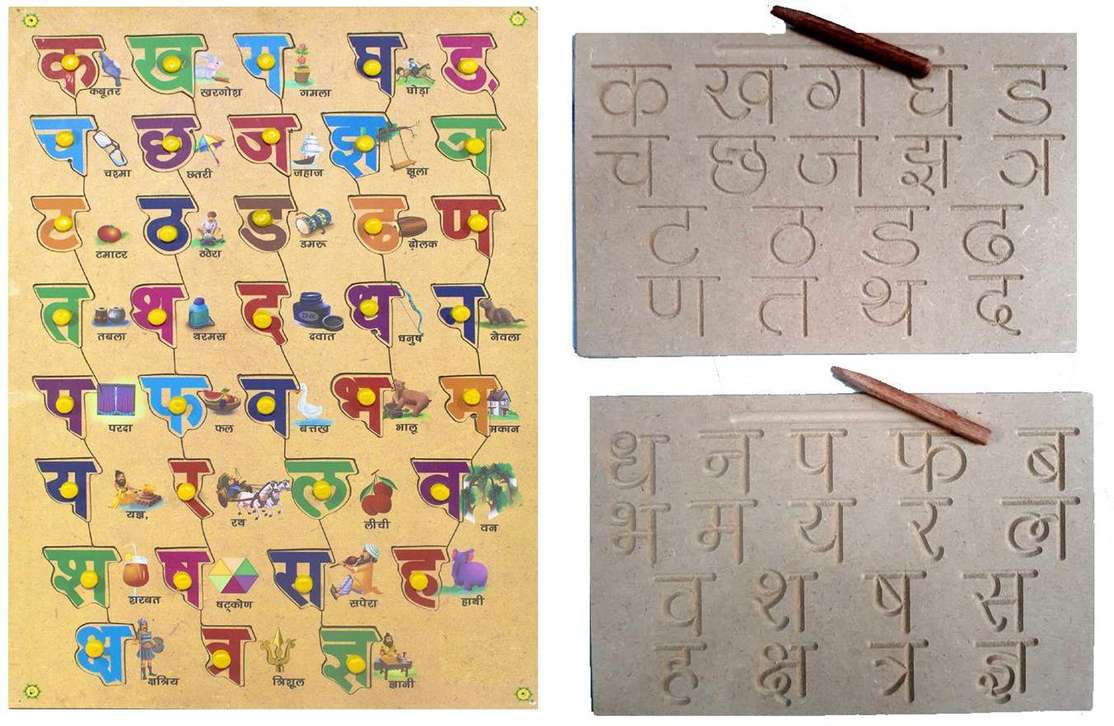 क ख ग घ ङ
कबूतर खरगोश गमला घोड़ा
च छ ज झ ञ
चश्मा छतरी जहाज झूला
ट ठ ड ढ ण
टमाटर ठठेरा डमरू ढ़ोलक
त थ द ध न
तबला थरमस दवात धनुष नेवला
प फ ब भ म
परदा फल बत्तख भालू मकान
य र ल व
यज्ञ, रथ लीची वन
श ष स ह
शरबत षट्कोण सपेरा हाथी
क्ष त्र ज्ञ
क्षत्रिय त्रिशूल ज्ञानी
क ख ग घ ड
च छ ज झ ञ
ट ठ ड ढ
ण त थ द
ध न प फ ब
भ म य र ल
व श ष स
ह क्ष त्र ज्ञ